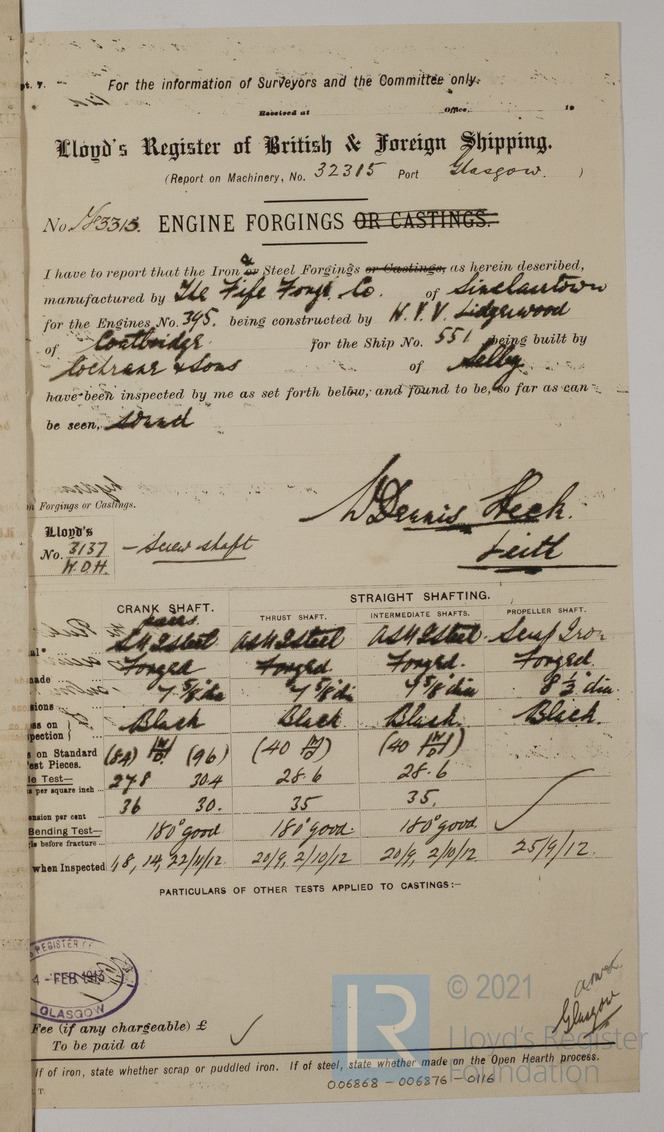 pt. 7.
For the information of Surveyors and the Committee only.
Received at Office, 19
Lloyd's Register of British & Foreign Shipping.
(Report on Machinery, No. 32315 Port Glasgow. )
No. 3313. ENGINE FORGINGS OR CASTINGS.
I have to report that the Iron & or Steel Forgings or Castings, as herein described,
manufactured by The Fife Forge Co. of Sinclairtown
for the Engines No. 395. being constructed by W. V. V. Lidgerwood
of Coatbridge for the Ship No. 551 being built by
Cochrane & Sons of Selby
have been inspected by me as set forth below, and found to be, so far as can
be seen, sound
n Forgings or Castings.
W Dennis Heck.
Leith
Lloyd's
No. 3137
W.D.H.
- Screw shaft
STRAIGHT SHAFTING.
CRANK SHAFT. THRUST SHAFT. INTERMEDIATE SHAFTS. PROPELLER SHAFT.
al* steel steel steel Scrap Iron
Forged Forged Forged. Forged.
nade
sions 7 5/8 dia 7 5/8 dia 7 5/8 dia 8 1/2 dia.
ss on Black Black Black. Black.
pection
s on Standard (84) (96) (40 ) (40 )
est Pieces.
le Test— 27.8 30.4 28.6 28.6
s per square inch
ension per cent 36 30. 35 35.
Bending Test— 180° good 180° good. 180° good
gle before fracture
when Inspected 18, 14, 22/11/12. 20/9, 2/10/12 20/9, 2/10/12. 25/9/12.
PARTICULARS OF OTHER TESTS APPLIED TO CASTINGS:—
REGISTER
4 - FEB 1913
GLASGOW
Glasgow
Fee (if any chargeable) £
To be paid at
If of iron, state whether scrap or puddled iron. If of steel, state whether made on the Open Hearth process.
T.
006868 - 006876 - 0116
© 2021
Lloyd's Register
Foundation